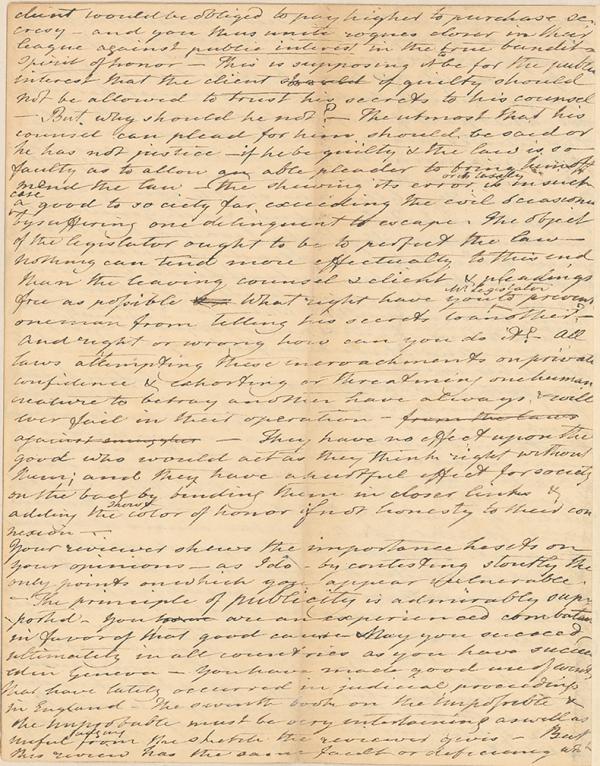 client would be obliged to pay higher to purchase se-
cresy - and you thus unite rogues closer in their
league against public interest in the true banditti
Spirit of honor - This is supposing it be for the public
interest that the client should if guilty should
not be allowed to trust his secrets to his counsel
- But why should he not? - The utmost that his
counsel can plead for him should be said or
he has not justice - if he be guilty & the law is so
faulty as to allow an able pleader to bring him off
or to
mend the law - the shewing its error is in such
case
a good to society far exceeding the evil occasioned
by suffering one delinquent to escape. The object
of the legislator ought to be to perfect the law -
nothing can tend more effectually to this end
than the leaving counsel & client & pleadings
free as possible What right have you to prevent
Mr legislator
one man from telling his secrets to another? -
And right or wrong how can you do it? All
laws attempting these incroachments on private
confidence & exhorting or threatening one human
creature to betray another have always & will
ever fail in their operation - from the laws
against smuggler - They have no effect upon the
good who would act as they think right without
them; and they have a hurtful effect for society
on the bad by binding them in closer links &
adding the color of honor if not honesty to their con
shew of
nexion -
Your reviewer shews the importance he sets on
your opinions - as I do by contesting stoutly the
only points on which you appear vulnerable.
- The principle of publicity is admirably sup-
ported - You are an experienced combatant
in favor of that good cause - May you succeed
ultimately in all countries as you have succee
ded in Geneva - You have made good use of
that have lately occurred in judicial proceedings
in England - The seventh book on the Impossible &
the Improbable must be very entertaining as well as
useful from the sketch the reviewer gives - But
judging
this review has the same fault or deficiency